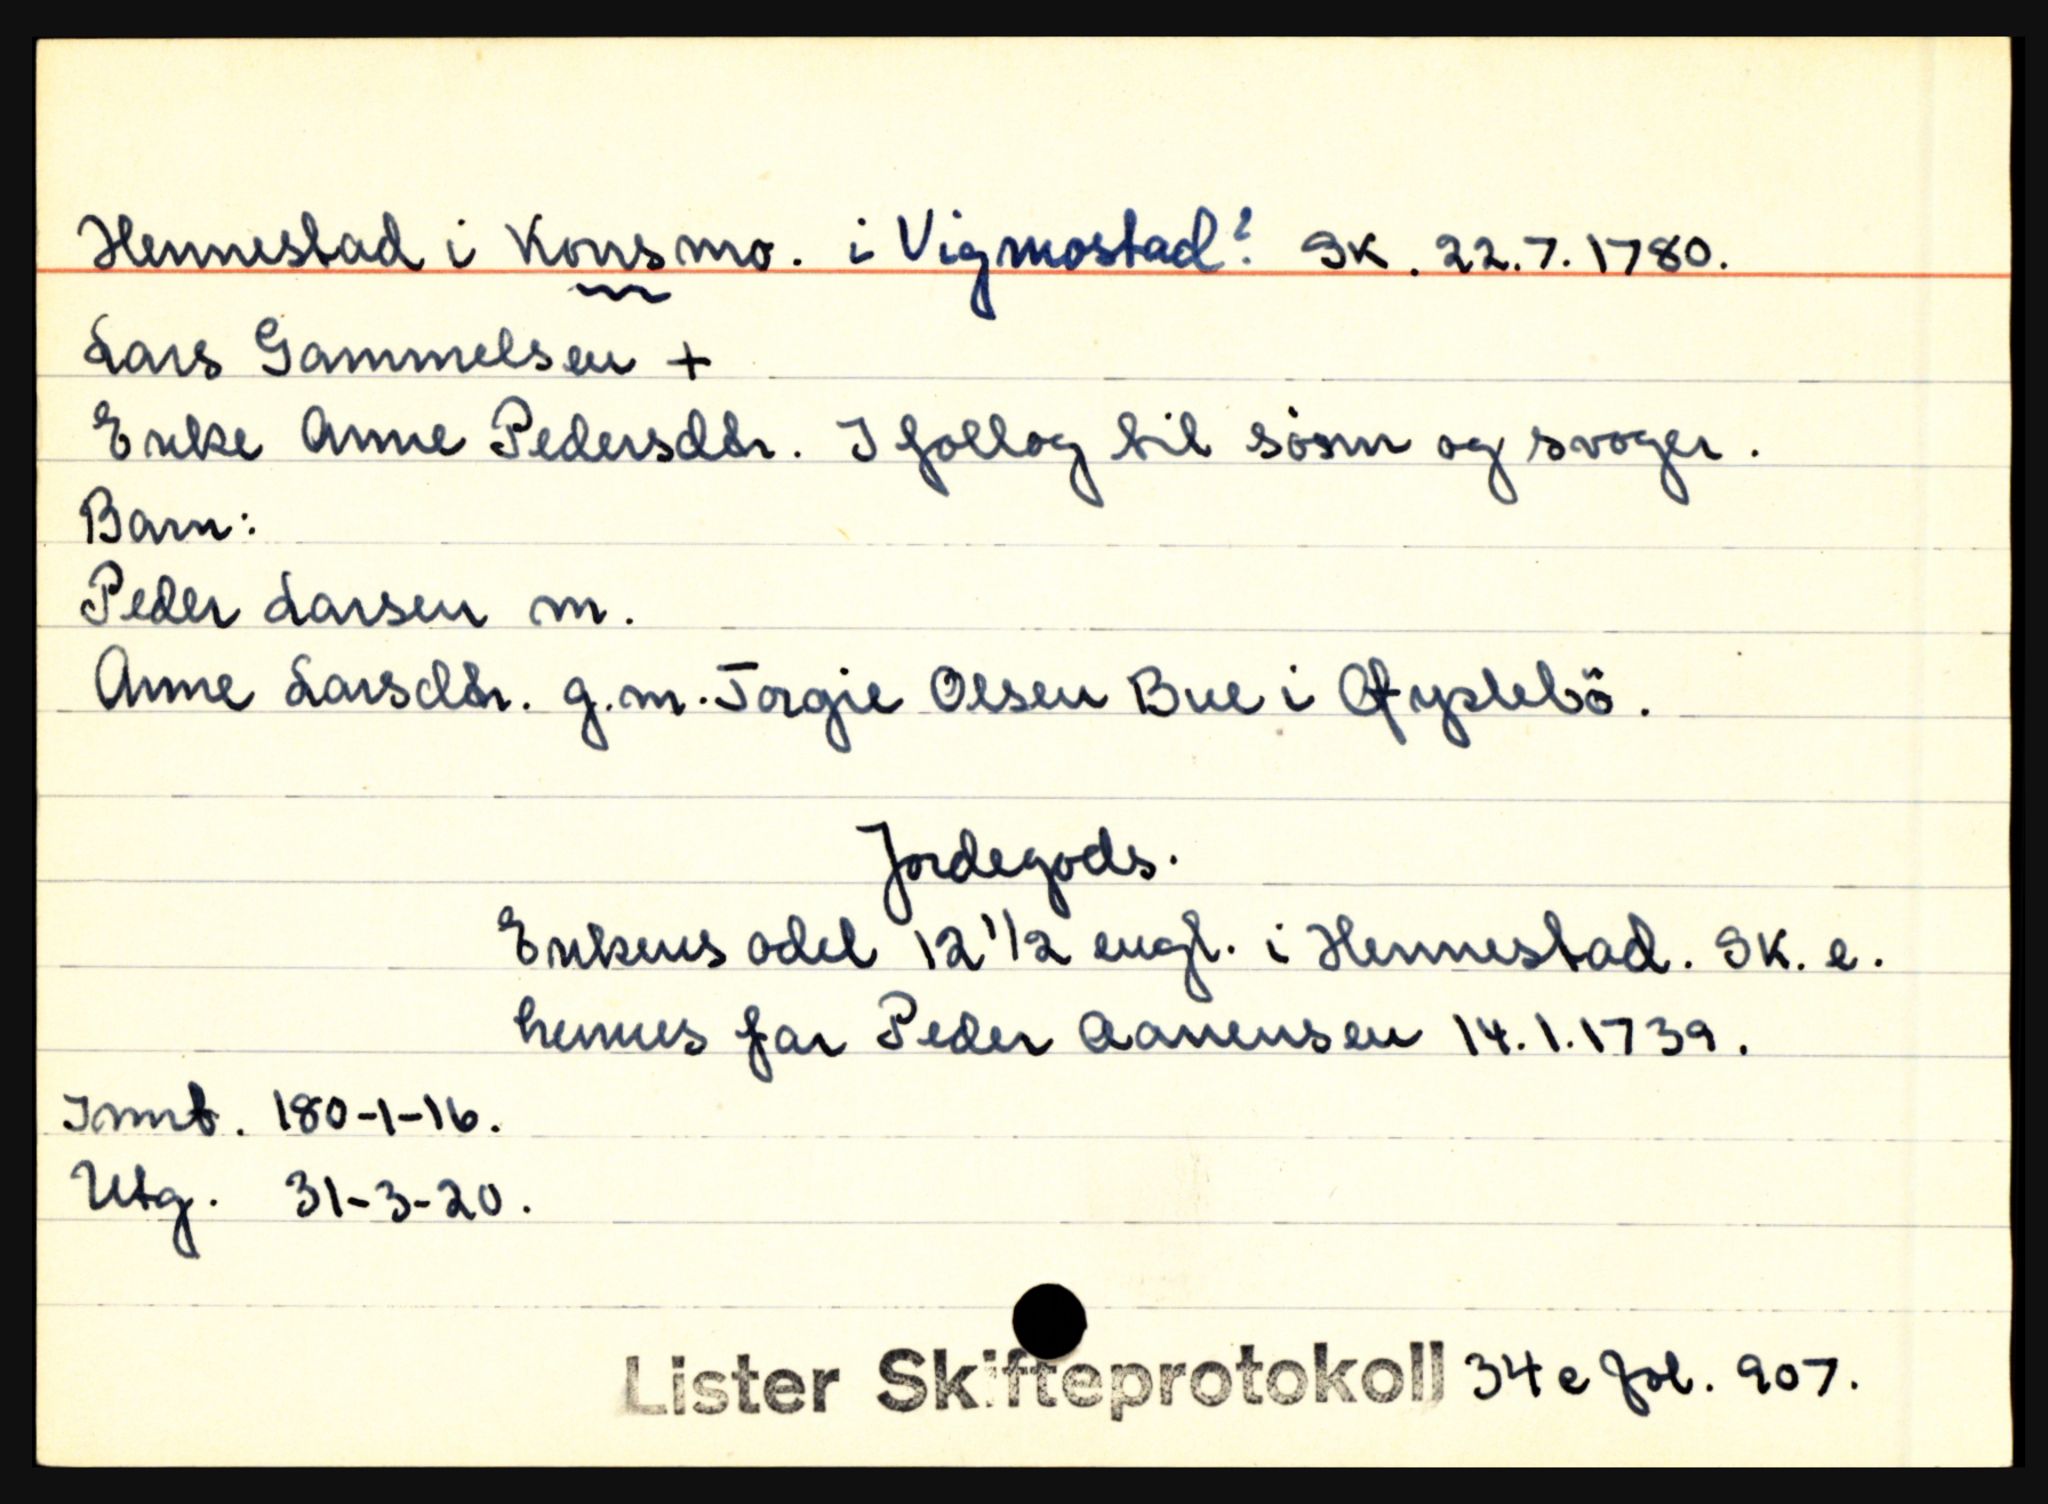 Hennestad i Konsmo. i Vigmostad? SK. 22.7.1780.
Lars Gammelsen +
Enke Anne Pedersdtr. I follog til sösnn og svoger.
Barn:
Peder Larsen m.
Anne Larsdtr. g.m. Torgie Olsen Bue i Öfyslebö.
Jordegods.
Enkens odel 12 1/2 engl. i Hennestad. SK. e.
hennes far Peder Aanensen 14.1.1739.
Innb. 180-1-16.
Utg. 31-3-20.
Lister Skifteprotokoll 34 e fol. 907.